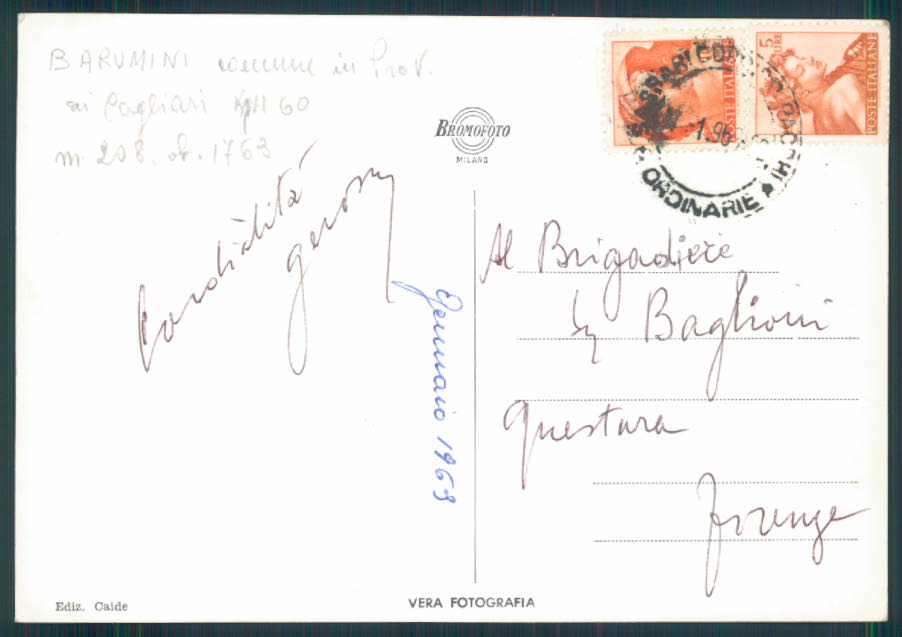 BARUMINI comune in Prov.
di Cagliari KM 60
m. 208. ab. 1763
BROMOFOTO
MILANO
5 LIRE
POSTE ITALIANE
POSTE ITALIANE
ORDINARIE
Cordialità
Gennaio 1963
Al Brigadiere
Baglioni
Questura
Firenze
Ediz. Caide
VERA FOTOGRAFIA